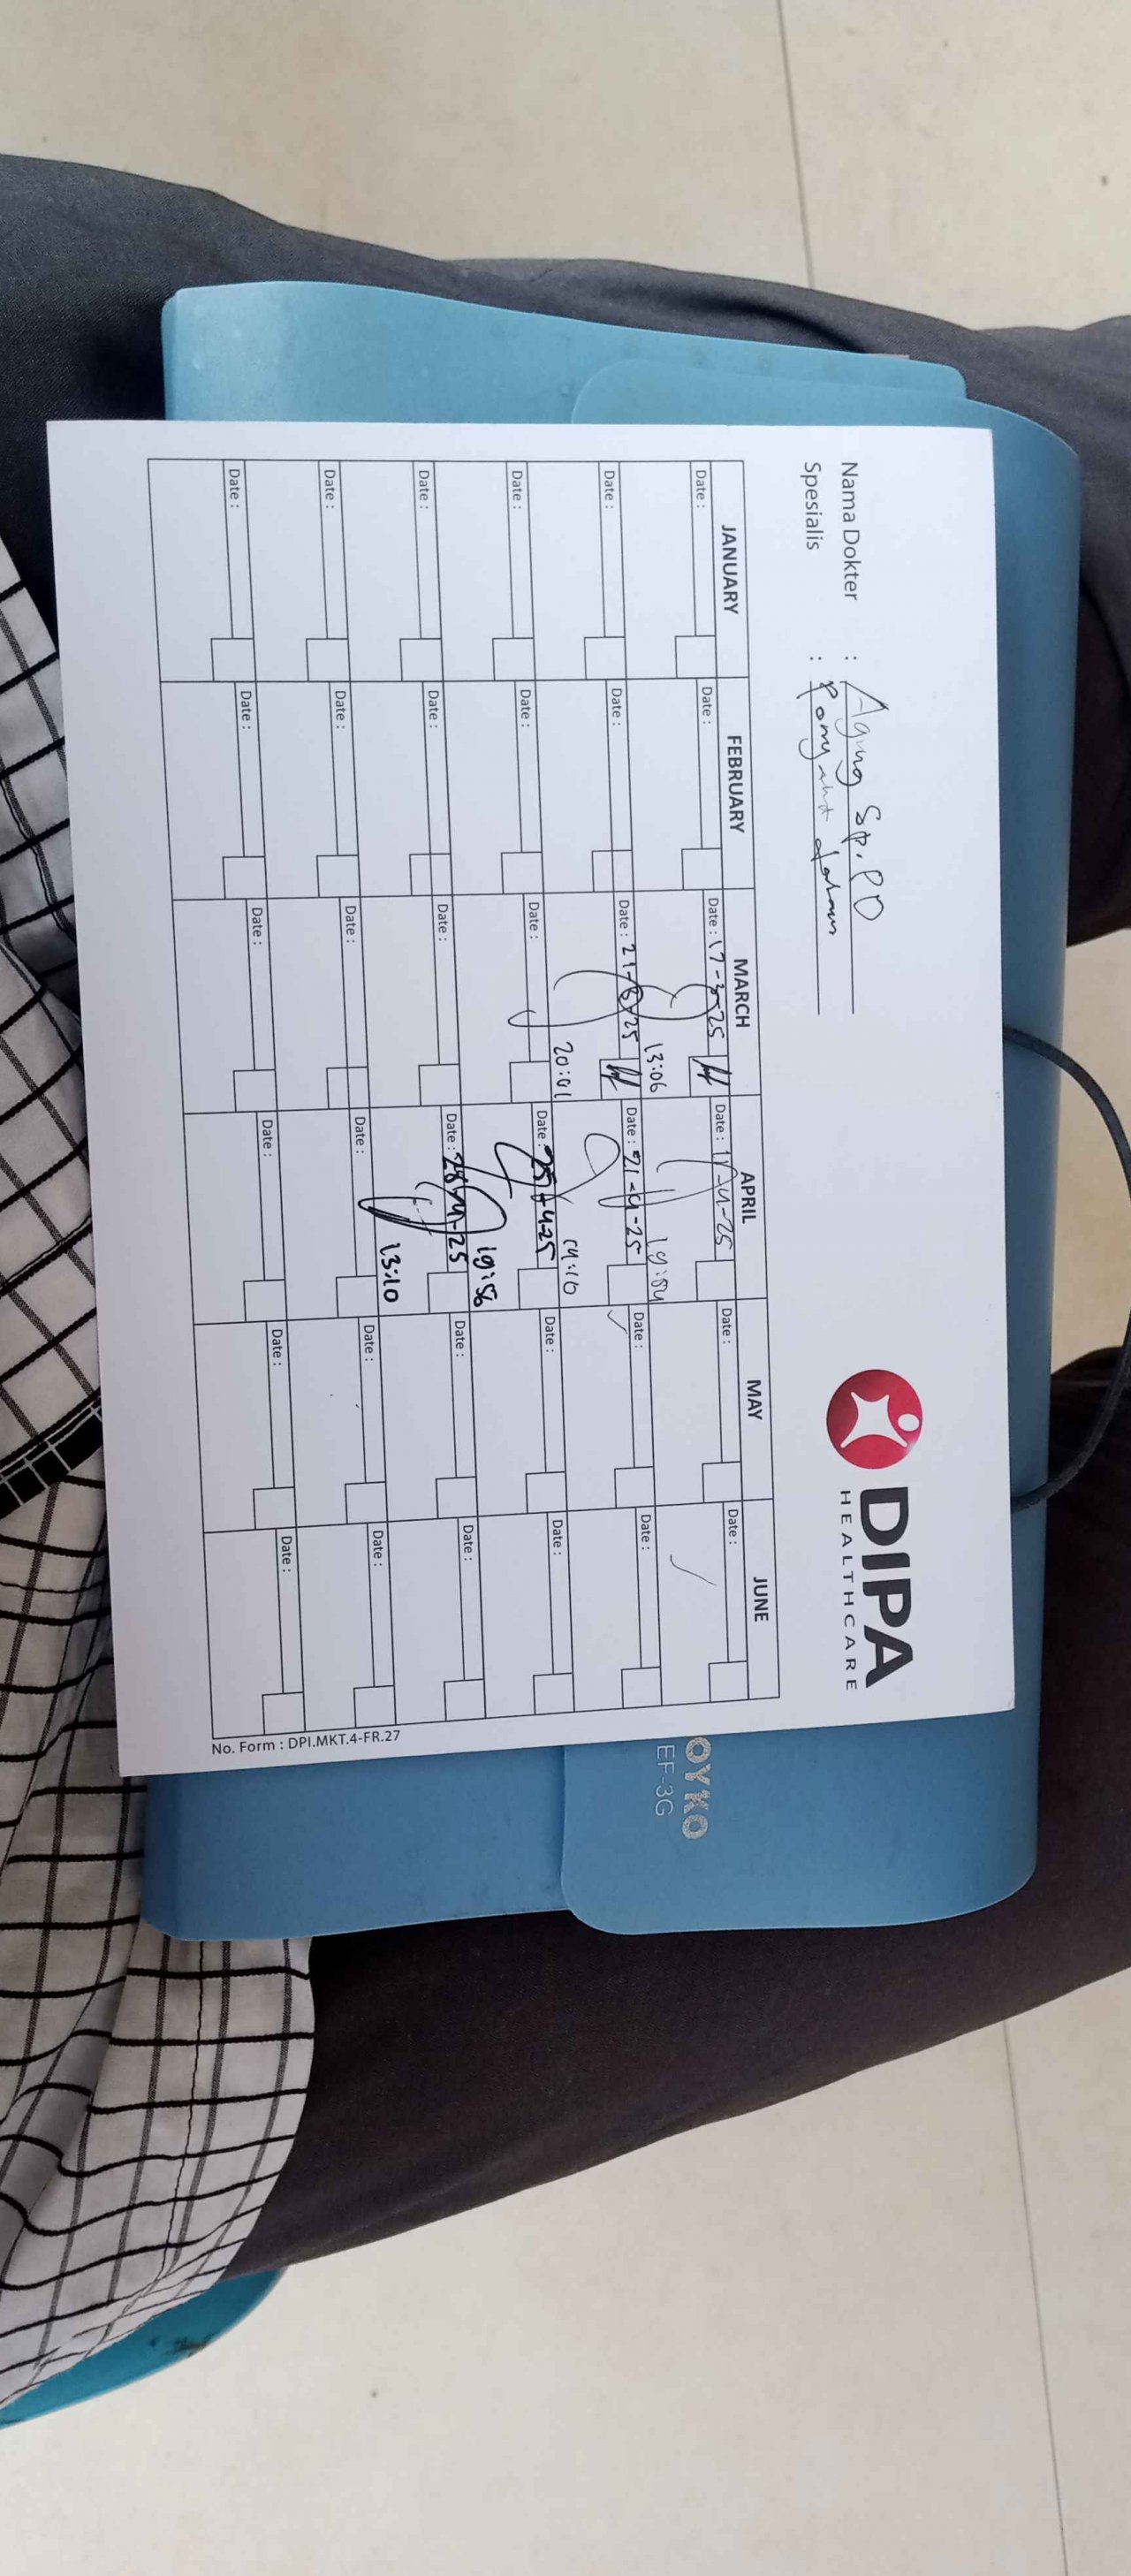 DIPA
HEALTHCARE
Nama Dokter : Agung Sp.PD
Spesialis : Penyakit dalam
JANUARY FEBRUARY MARCH APRIL MAY JUNE
Date : Date : Date : 17-3-25 Date : 11-4-25 Date : Date :
13:06 19:04
Date : Date : Date : 21-3-25 Date : 21-4-25 Date : Date :
20:01 14:10
Date : Date : Date : Date : 25-4-25 Date : Date :
19:56
Date : Date : Date : Date : 28-4-25 Date : Date :
13:10
Date : Date : Date : Date : Date : Date :
Date : Date : Date : Date : Date : Date :
No. Form : DPI.MKT.4-FR.27
OYKO
EF-3G